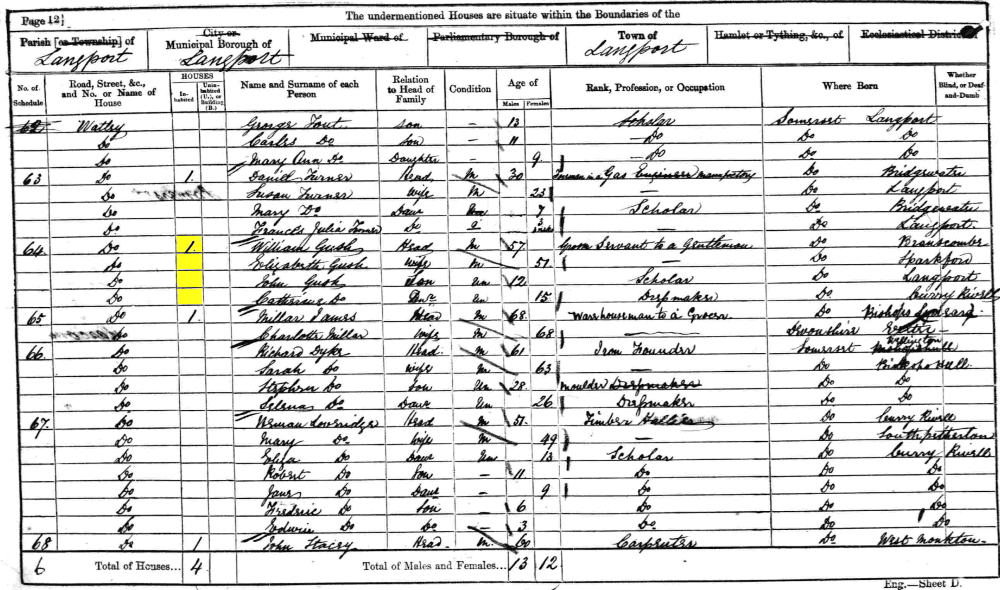 Page 12½
The undermentioned Houses are situate within the Boundaries of the
Parish [or Township] of
City or Municipal Borough of
Municipal Ward of
Parliamentary Borough of
Town of
Hamlet or Tything, &c., of
Ecclesiastical District of
Langport Langport Langport
No. of Schedule
Road, Street, &c., and No. or Name of House
HOUSES
In-habited
Unin-habited (U.), or Building (B.)
Name and Surname of each Person
Relation to Head of Family
Condition
Age of
Males
Females
Rank, Profession, or Occupation
Where Born
Whether Blind, or Deaf-and-Dumb
62 Do George son — 13 Scholar Somerset Langport
Do Do Son — 11 Do Do Do
Do Mary Ann Do Daughter — 9 Do Do Do
63 Do 1 David Turner Head M 30 Gas Do Bridgwater
Do Susan Turner Wife M 23 — Do Langport
Do Mary Do Daur 7 Scholar Do Bridgwater
Do Frances Julia Turner Do — Do Langport
64 Do 1 William Gush Head M 57 Groom Servant to a Gentleman Do Branscombe
Do Elizabeth Gush Wife M 51 — Do Sparkford
Do John Gush Son Un 12 Scholar Do Langport
Do Catherine Do Daur Un 15 Dressmaker Do Curry Rivell
65 Do 1 Millar James Head M 68 Warehouseman to a Grocer Do Bishops
Do Charlotte Millar Wife M 68 — Devonshire Exeter
66 Do Richard Dyke Head M 61 Iron Founder Somerset Wellington
Do Sarah Do Wife 63 — Do
Do Stephen Do Son Un 28 moulder Dressmaker Do Do
Do Selena Do Daur Un 26 Dressmaker Do Do
67 Do Head M 51 Timber Do Curry Rivell
Do Mary Do Wife M 49 — Do South petherton
Do Eliza Do Daur Un 13 Scholar Do Curry Rivell
Do Robert Do Son — 11 Do Do Do
Do Jane Do Daur — 9 Do Do Do
Do Fredric Do Son — 6 Do Do Do
Do Edwin Do Do — 3 Do Do Do
68 Do 1 John Stacey Head M 60 Carpenter Do West Monkton
6 Total of Houses... 4 Total of Males and Females... 13 12
Eng.—Sheet D.